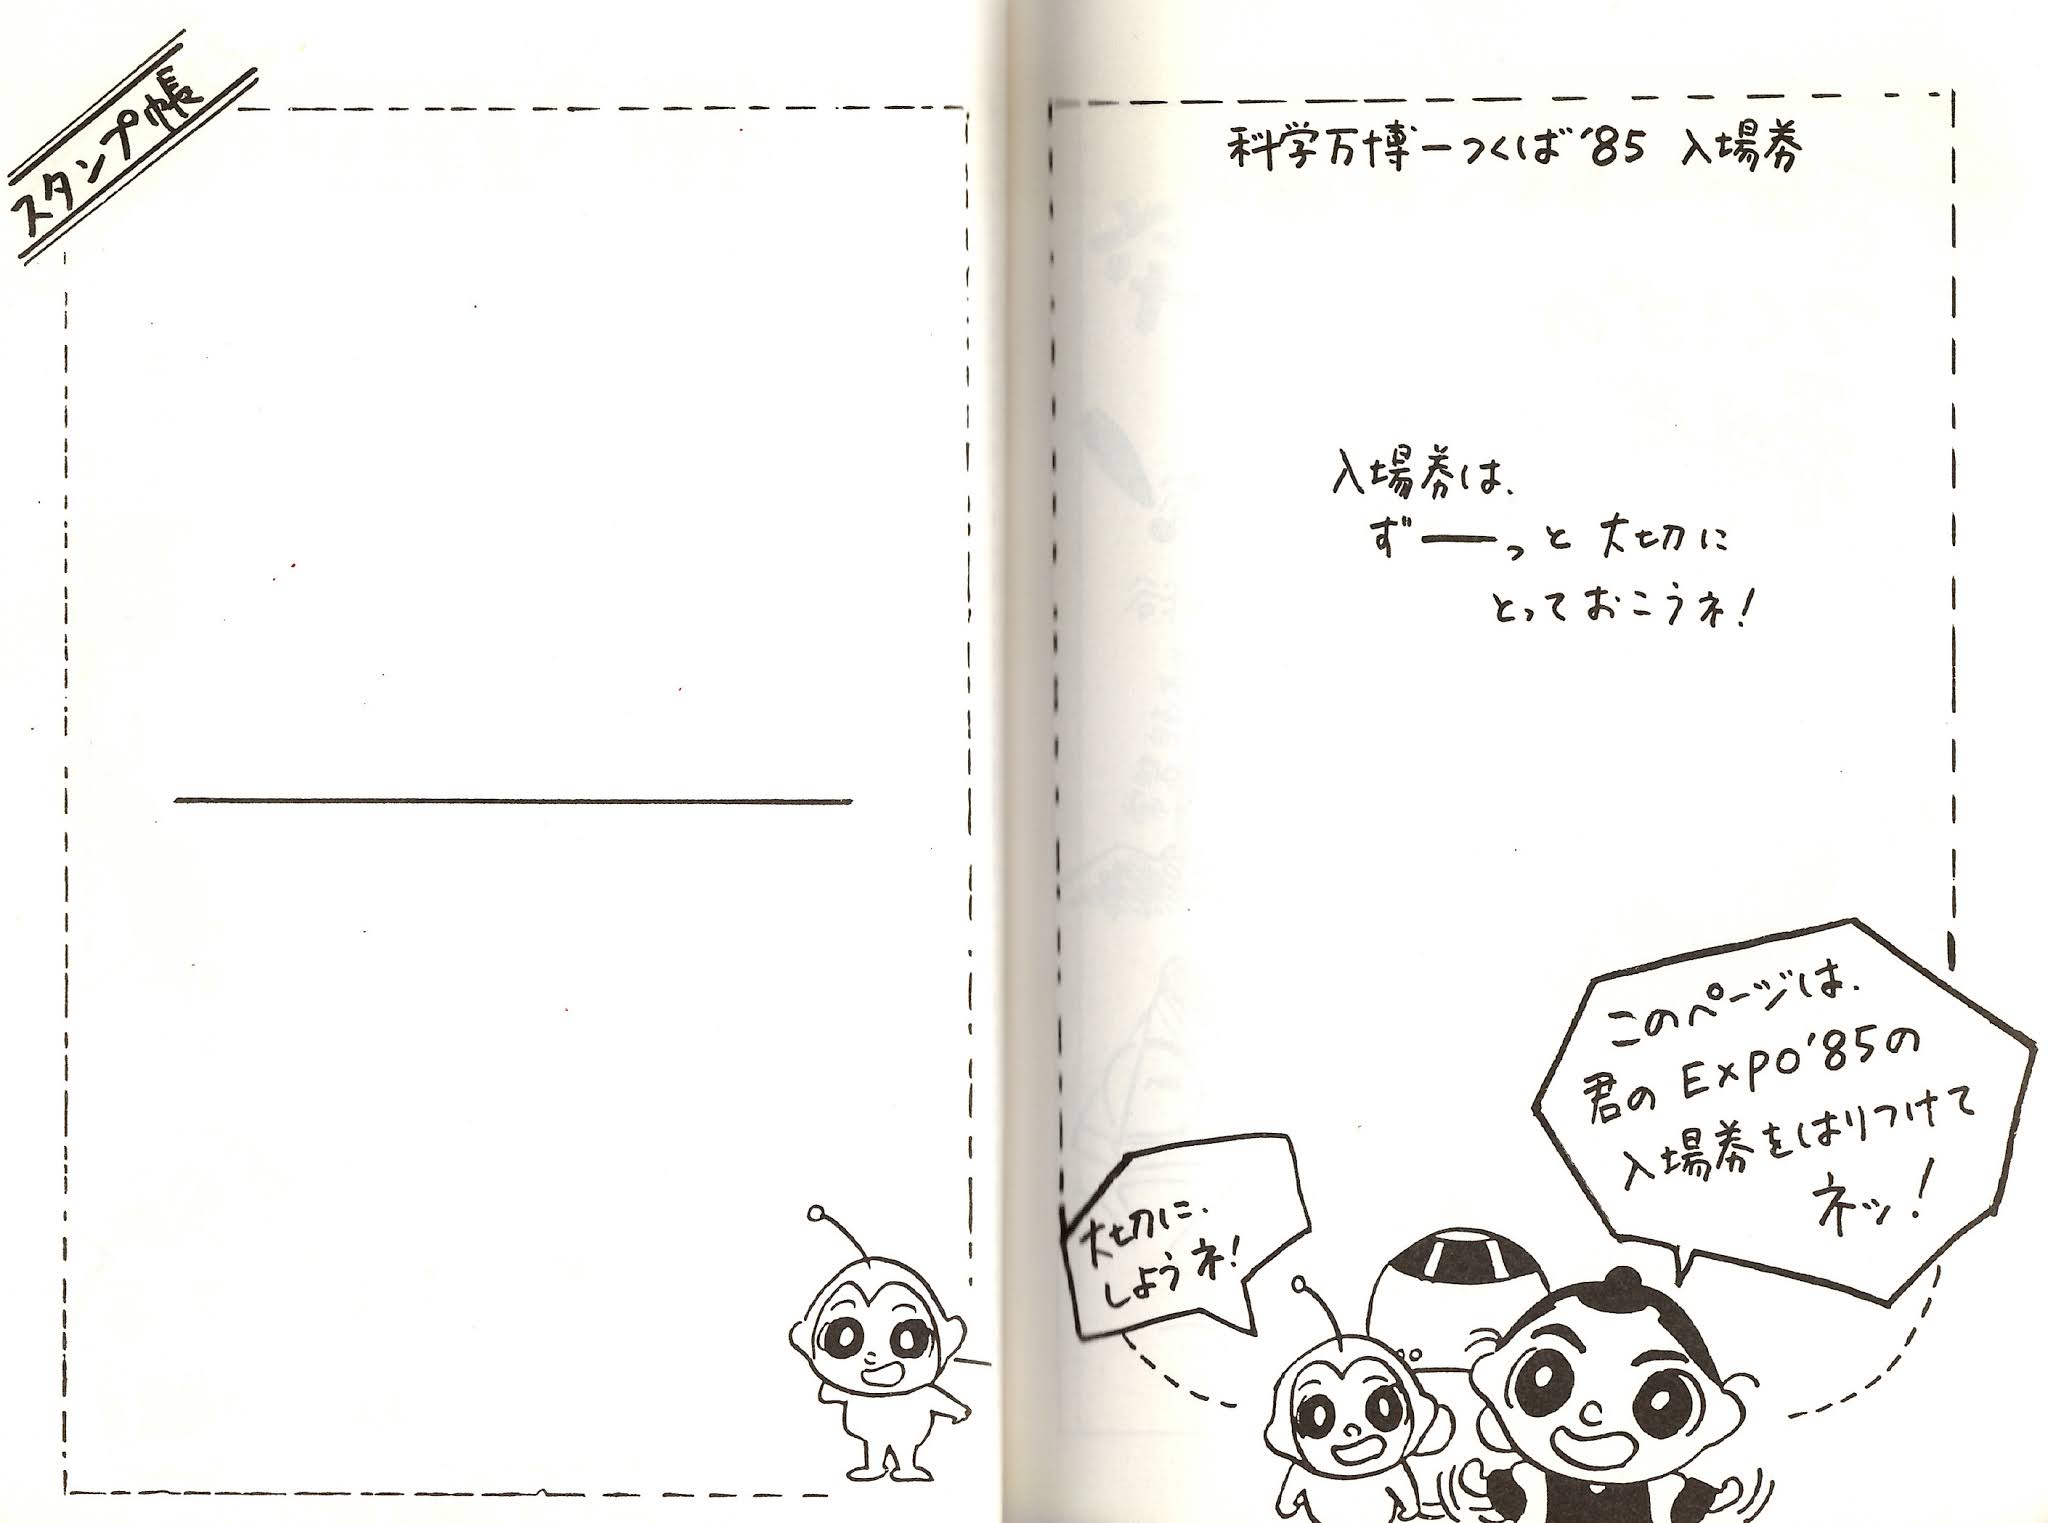 スタンプ帳
科学万博ーつくば'85 入場券
入場券は、
ずーっと 大切に
とっておこうネ!
このページは、
君の Expo'85の
入場券をはりつけて
ネッ!
大切に、
しようネ!